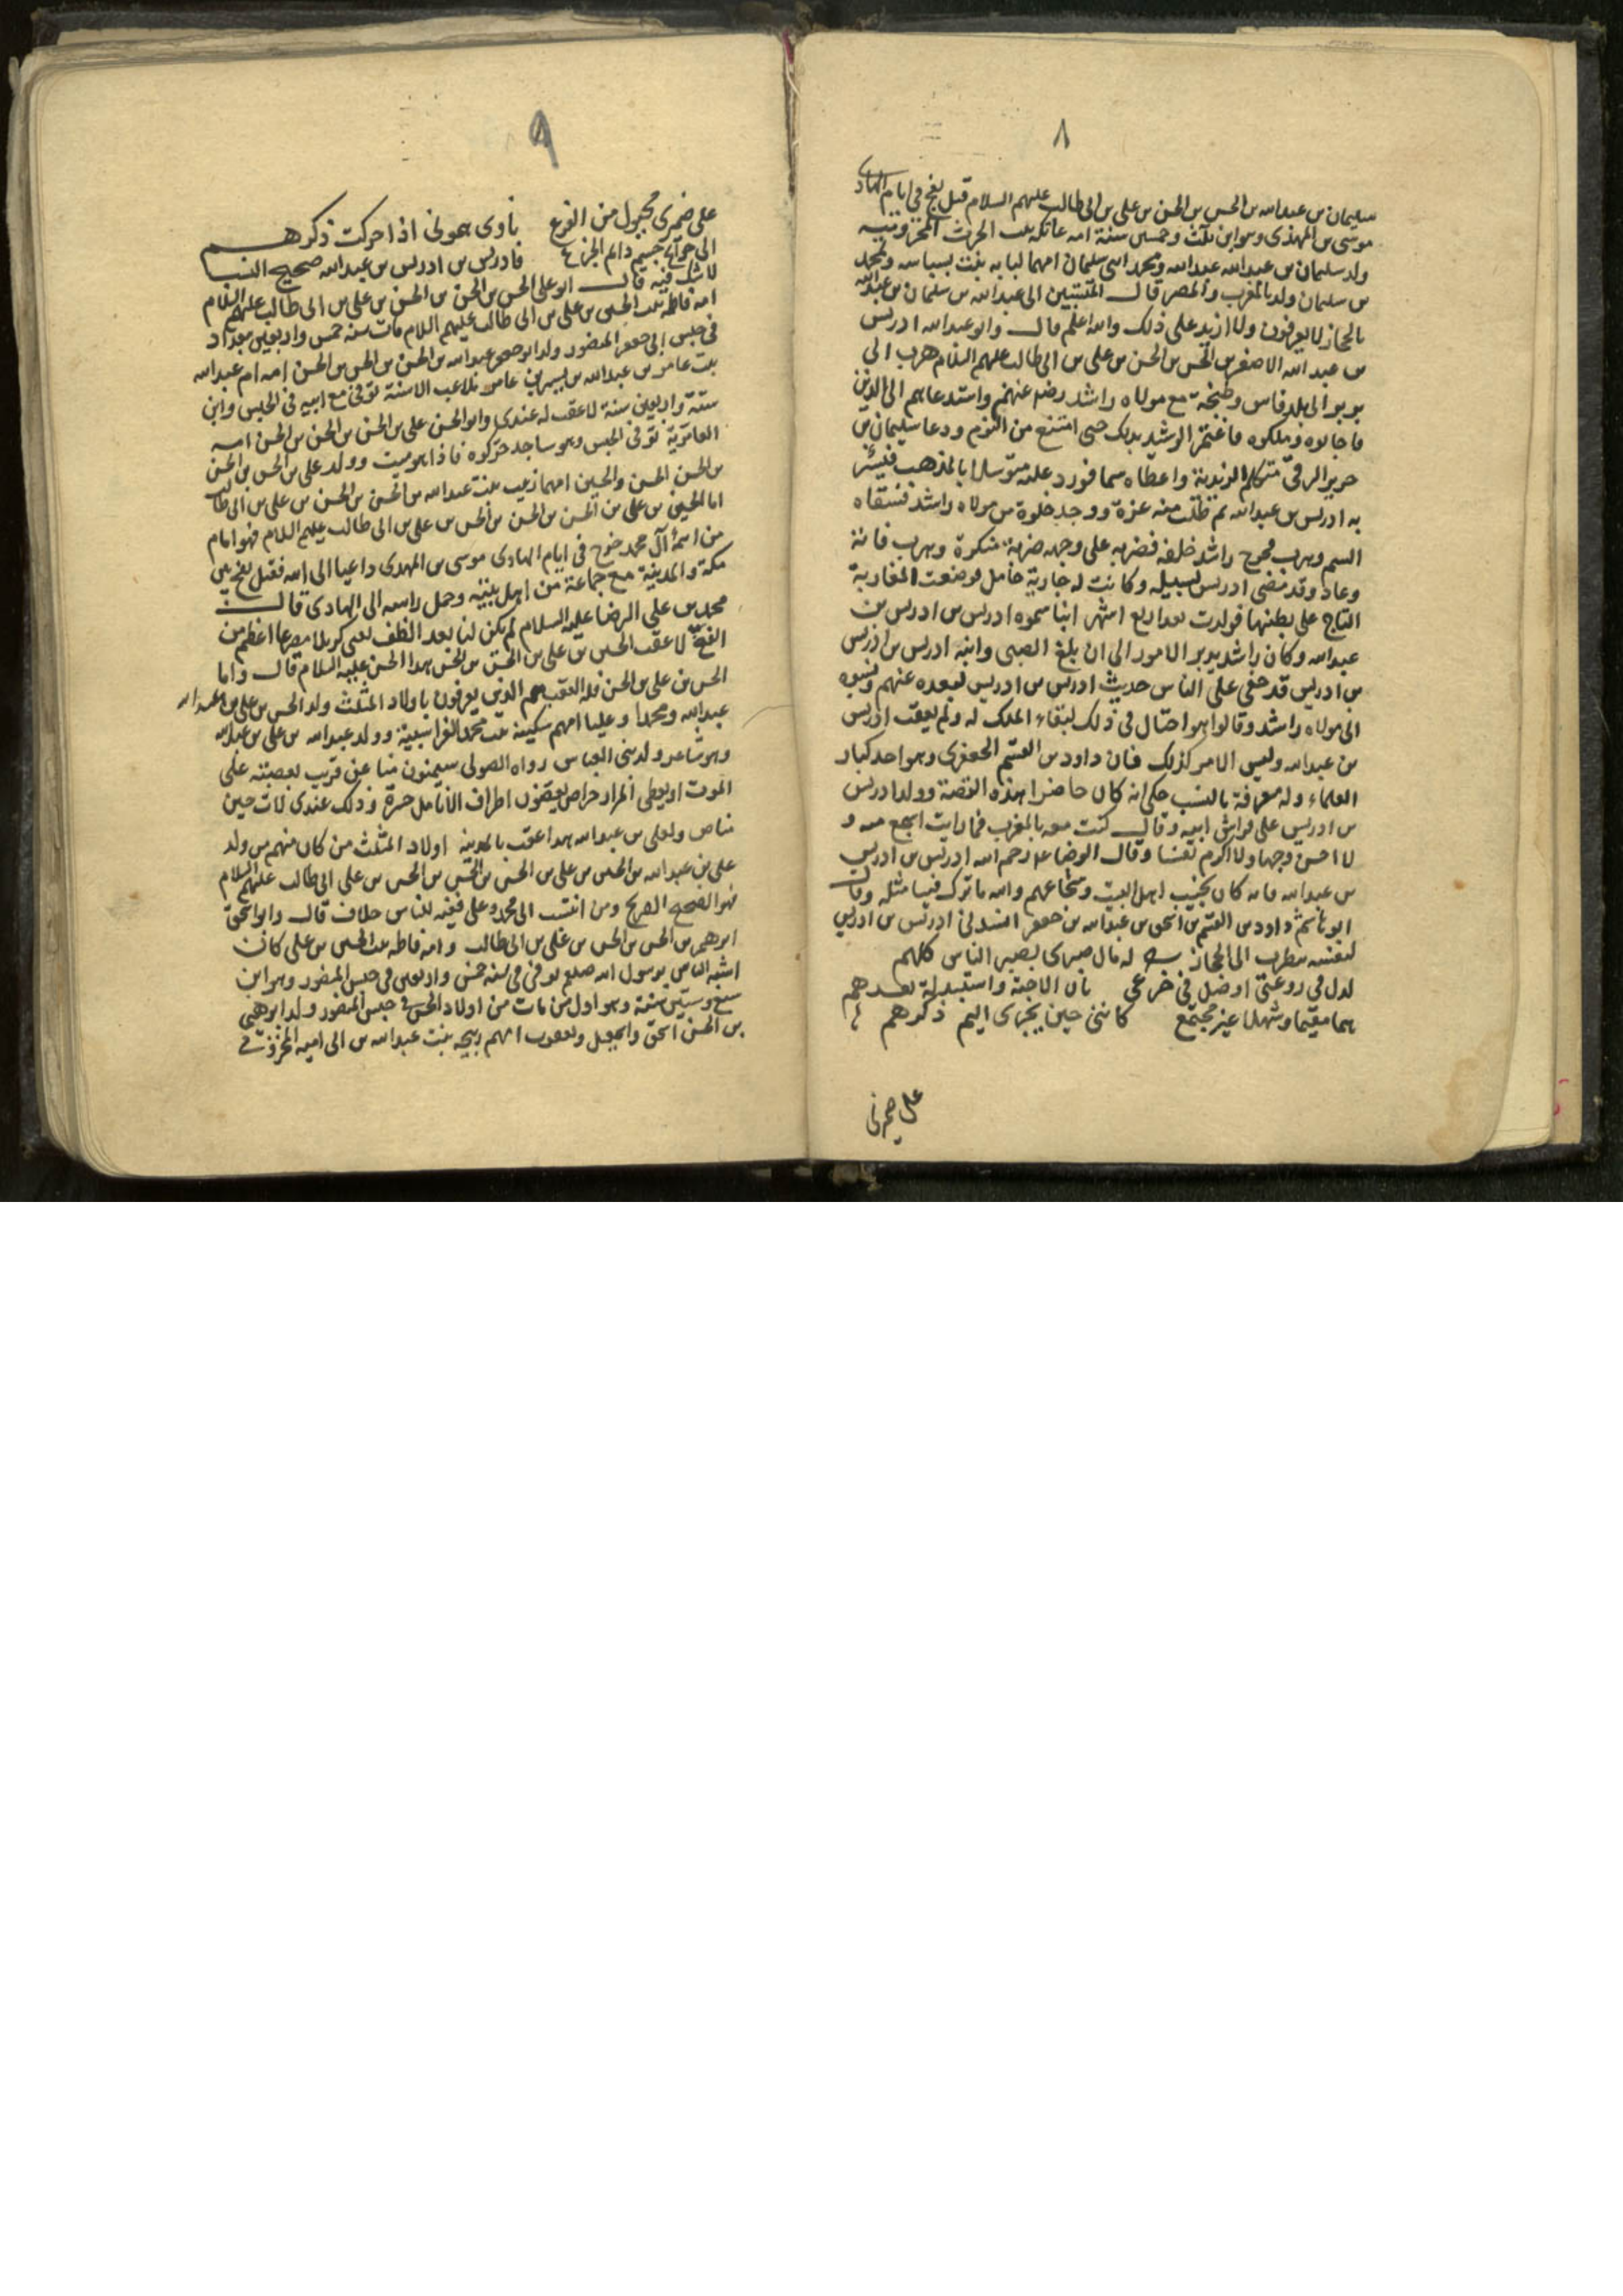 ٨
سليمان بن عبدالله بن الحسن بن الحسن بن علي بن ابى طالب عليهم السلام قتل بفخ في ايام الهادى
موسى بن المهدى وهو ابن ثلث وخمسين سنة امه عاتكه بنت الحرث المخزوميه
ولد سليمان بن عبدالله عبدالله ومحمد ابنى سليمان امهما لبابه بنت ولمحمد
بن سليمان ولد بالمغرب والمصر قال المنتسبين الى عبدالله بن سليمان بن عبدالله
بالحجاز لا يعرفون ولا ازيد على ذلك والله اعلم قال وابو عبدالله ادريس
بن عبد الله الاصغر بن الحسن بن الحسن بن على بن ابى طالب عليهم السلام هرب الى
بربر الى بلد فاس وطنجة مع مولاه راشد رضى عنهم واستدعاهم الى الدين
فاجابوه وملكوه فاغتم الرشيد بذلك حتى امتنع من النوم ودعا سليمان بن
حرير الرقى متكلم الزيدية واعطاه سما فورد عليه متوسلا بالمذهب فيسر
به ادريس بن عبدالله ثم طلب منه غرة ووجد خلوة من مولاه راشد فسقاه
السم وهرب فخرج راشد خلفه فضربه على وجهه ضربة منكرة وهرب فاتة
وعاد وقد مضى ادريس لسبيله وكانت له جارية حامل فوضعت المغاربة
التاج على بطنها فولدت بعد اربع اشهر ابنا سموه ادريس بن ادريس بن
عبدالله وكان راشد يدبر الامور الى ان بلغ الصبى وابنه ادريس بن ادريس
بن ادريس قد خفى على الناس حديث ادريس بن ادريس لبعده عنهم ونسبوه
الى مولاه راشد وقالوا هو احتال فى ذلك لبقاء الملك له ولم يعقب ادريس
بن عبدالله وليس الامر كذلك فان داود بن القسم الجعفرى وهو احد كبار
العلماء وله معرفة بالنسب حكى انه كان حاضرا هذه القصة وولد ادريس
بن ادريس على فراش ابيه وقال كنت معه بالمغرب فما رايت اشجع منه و
لا احسن وجها ولا اكرم نفسا وقال الرضا ع رحم الله ادريس بن ادريس
بن عبدالله فانه كان نجيب اهل البيت وشجاعهم والله ما ترك فينا مثله وقال
ابو هاشم داود بن القسم بن اسحق بن عبدالله بن جعفر انشدنى ادريس بن ادريس
لنفسه الى الحجاز له مال صبرى بصبر الناس كلهم
لدل فى روعتى اوضل فى جزعى بان الاحبة واستبدلت بعدهم
هما مقيما وشملا غير مجتمع كاننى حين يجرى اليم ذكرهم
على ضمرى
٩
على ضمرى مجبول من الفزع تاوى همونى اذا حركت ذكرهم
الى جوآء جسم دائم الجزع فادريس بن ادريس بن عبدالله صحيح النسب
لا شك فيه قال ابو على الحسن بن الحسن بن الحسن بن على بن ابى طالب عليهم السلام
امه فاطمة بنت الحسين بن على بن ابى طالب عليهم السلام مات سنه خمس واربعين ببغداد
فى حبس ابى جعفر المنصور ولد ابو جعفر عبدالله بن الحسن بن الحسن بن الحسن امه ام عبدالله
بنت عامر بن عبدالله بن بسر بن عامر ملاعب الاسنة توفى مع ابيه فى الحبس وابن
ستة واربعين سنة لا عقب له عندى وابو الحسن على بن الحسن بن الحسن بن الحسن امه
العامرية توفى فى الحبس وهو ساجد حركوه فاذا هو ميت وولد على بن الحسن بن الحسن
بن الحسن الحسن والحسين امهما زينب بنت عبدالله بن الحسن بن الحسن بن على بن ابى طالب
اما الحسين بن على بن الحسن بن الحسن بن الحسن بن على بن ابى طالب عليهم السلام فهو امام
من آل محمد خرج فى ايام الهادى موسى بن المهدى داعيا الى الله فقتل بفخ بين
مكة والمدينة مع جماعة من اهل بيته وحمل راسه الى الهادى قال
محمد بن على الرضا عليه السلام لم يكن لنا بعد الطف يعنى كربلا مصرعا اعظم من
الفخ لا عقب الحسين بن على بن الحسن بن الحسن بهذا الحسن عليه السلام قال واما
الحسن بن على بن الحسن فله العقب هم الذين يعرفون باولاد المثلث ولد الحسن بن على بن عبدالله
عبدالله ومحمدا وعليا امهم سكينه بنت محمد وولد عبدالله بن على بن عبدالله
وهو شاعر ولد بنى العباس رواه الصولى سيمنون منا عن قريب بعصبته على
الموت او يعطى المراد حراص يعضون اطراف الانامل حسرة وذلك عندى لات حين
مناص ولعلى بن عبدالله هذا عقب بالمدينة اولاد المثلث من كان منهم من ولد
على بن عبدالله بن الحسن بن على بن الحسن بن الحسن بن الحسن بن على ابى طالب عليهم السلام
فهو الصحيح الصريح ومن انتسب الى محمد وعلى ففيه للناس خلاف قال وابو اسحق
ابرهيم بن الحسن بن الحسن بن على بن ابى طالب وامه فاطمه بنت الحسين بن على كان
اشبه الناس برسول الله صلعم توفى فى سنه خمس واربعين فى حبس المنصور وهو ابن
سبع وستين سنة وهو اول من مات من اولاد الحسن فى حبس المنصور ولد ابرهيم
بن الحسن اسحق واسمعيل ويعقوب امهم ربيحه بنت عبدالله بن ابى اميه المخزومى